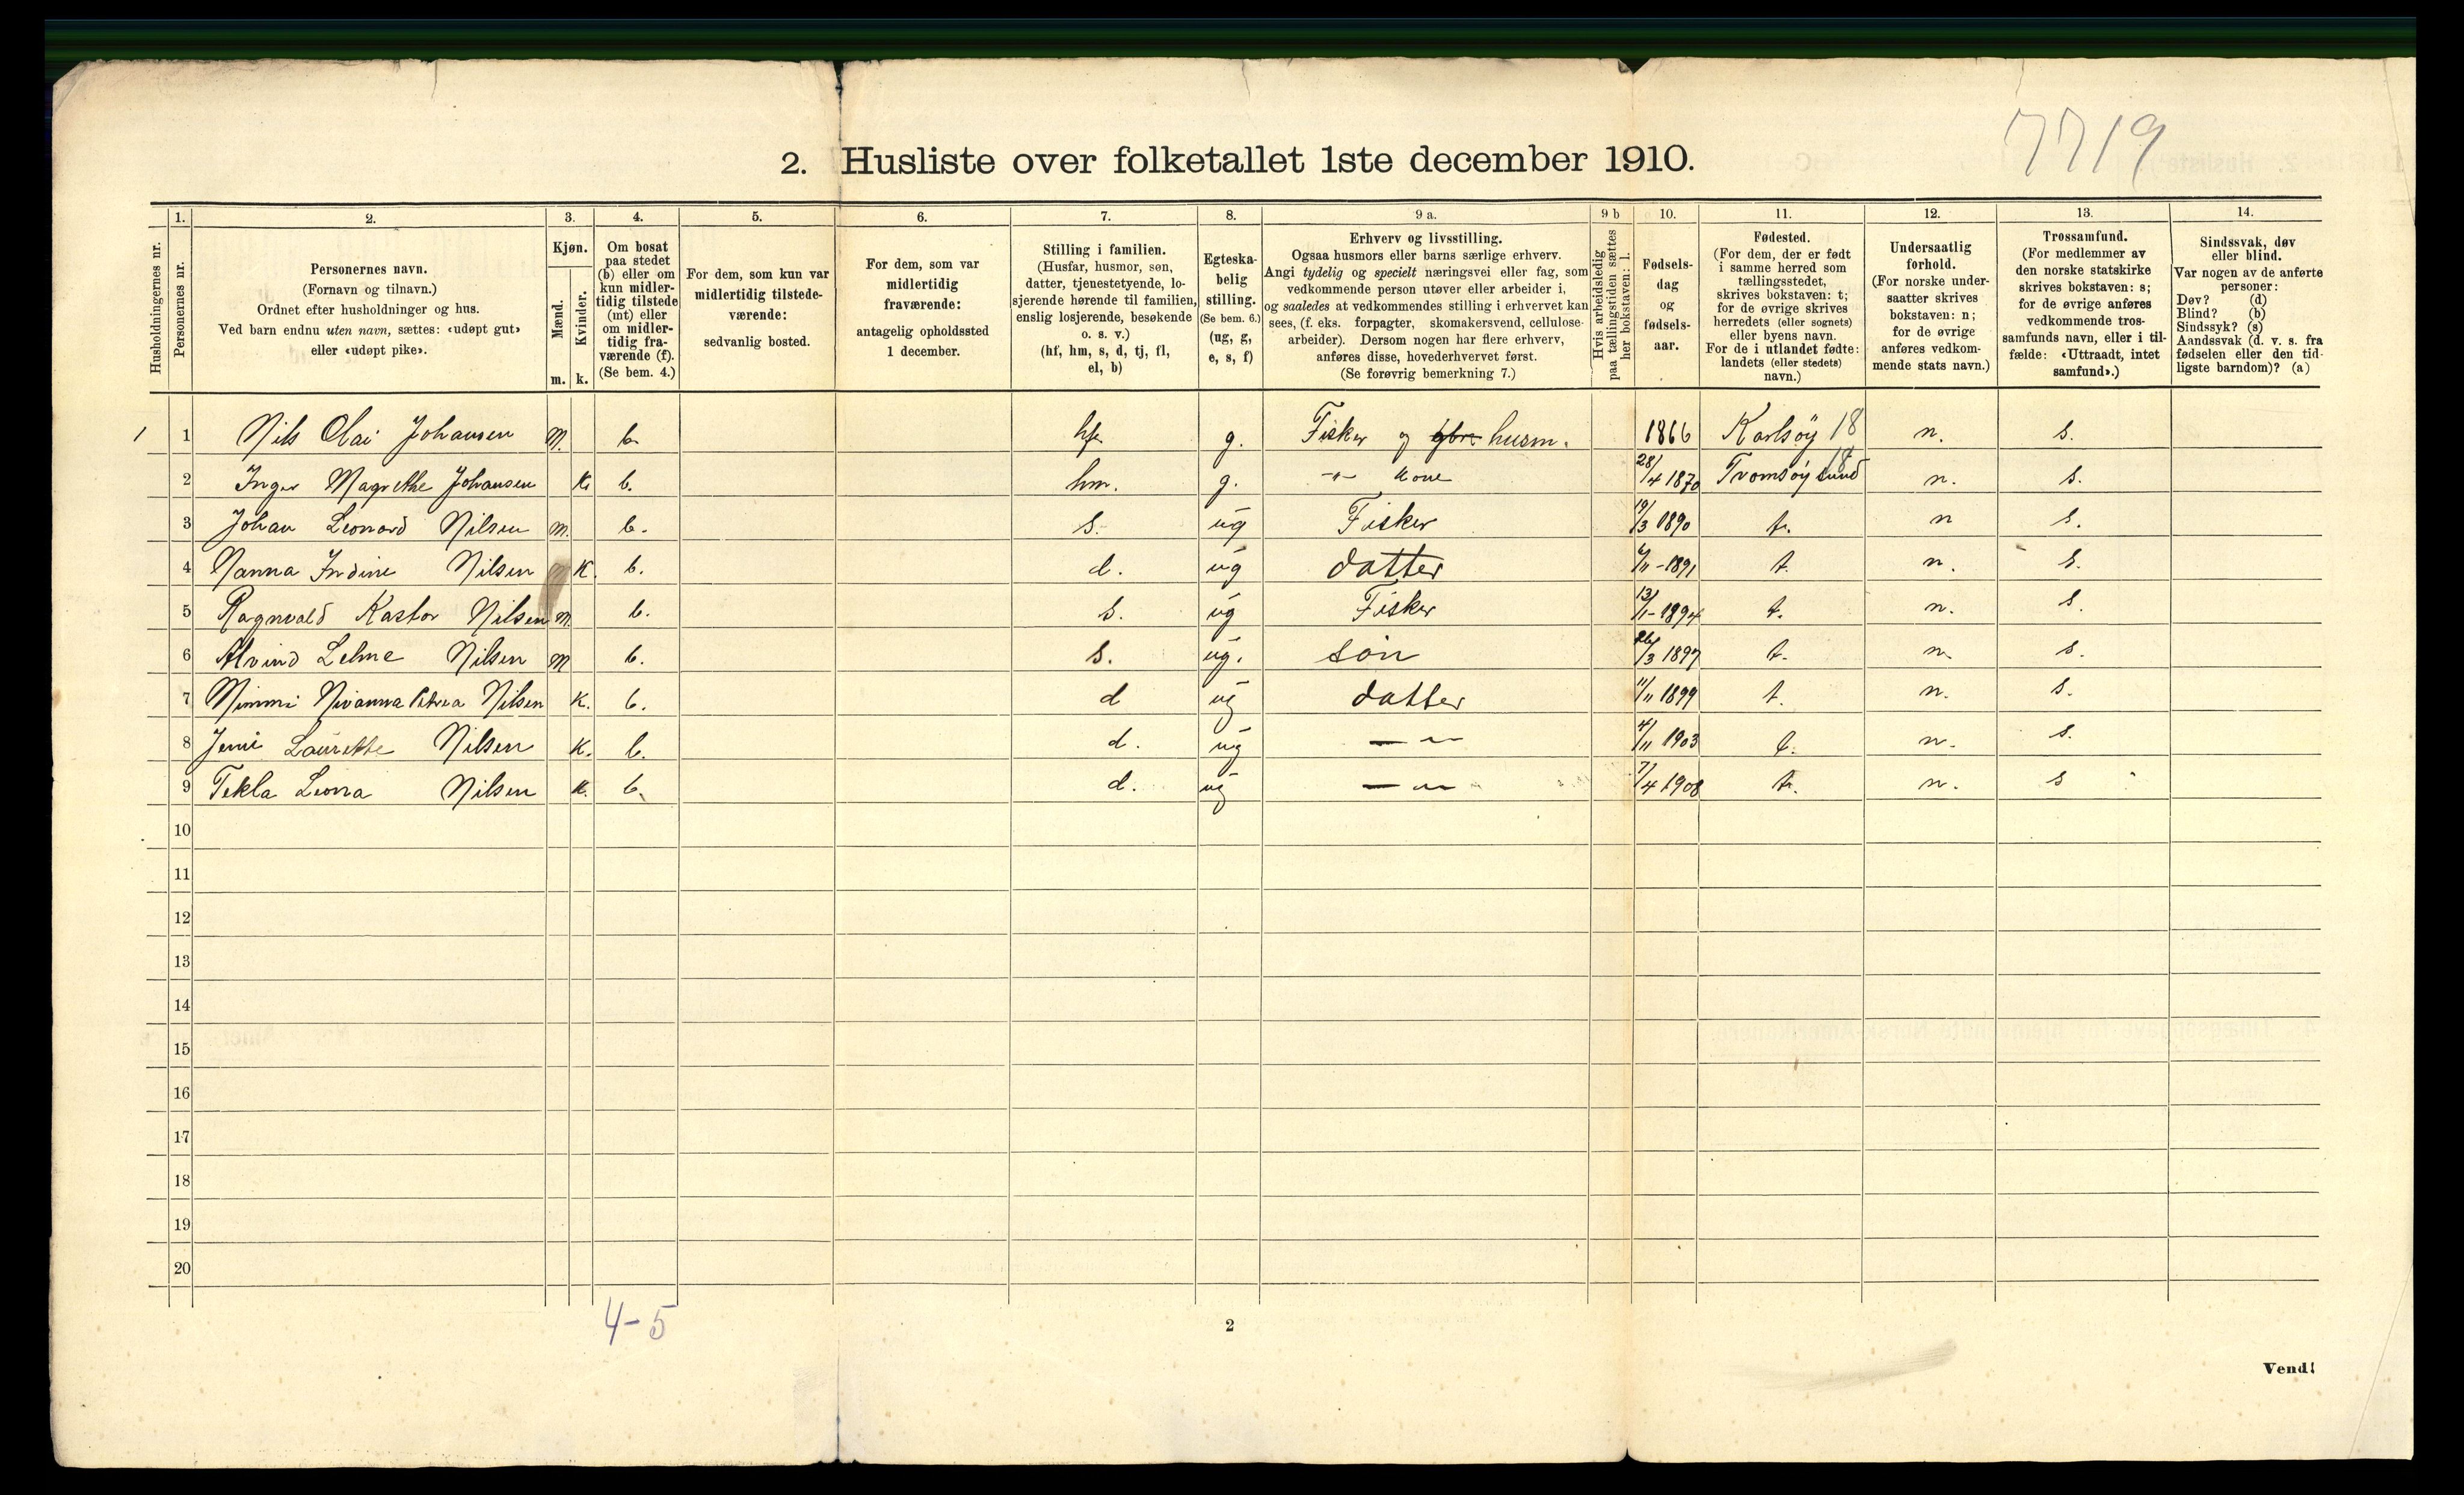 7719
2. Husliste over folketallet 1ste december 1910.
1. 2. 3. 4. 5. 6. 7. 8. 9 a. 9 b 10. 11. 12. 13. 14.
Husholdningernes nr.
Personernes nr.
Personernes navn.
(Fornavn og tilnavn.)
Ordnet efter husholdninger og hus.
Ved barn endnu uten navn, sættes: «udøpt gut»
eller «udøpt pike».
Kjøn.
Mænd.
Kvinder.
m. k.
Om bosat
paa stedet
(b) eller om
kun midler-
tidig tilstede
(mt) eller
om midler-
tidig fra-
værende (f).
(Se bem. 4.)
For dem, som kun var
midlertidig tilstede-
værende:
sedvanlig bosted.
For dem, som var
midlertidig
fraværende:
antagelig opholdssted
1 december.
Stilling i familien.
(Husfar, husmor, søn,
datter, tjenestetyende, lo-
sjerende hørende til familien,
enslig losjerende, besøkende
o. s. v.)
(hf, hm, s, d, tj, fl,
el, b)
Egteska-
belig
stilling.
(Se bem. 6.)
(ug, g,
e, s, f)
Erhverv og livsstilling.
Ogsaa husmors eller barns særlige erhverv.
Angi tydelig og specielt næringsvei eller fag, som
vedkommende person utøver eller arbeider i,
og saaledes at vedkommendes stilling i erhvervet kan
sees, (f. eks. forpagter, skomakersvend, cellulose-
arbeider). Dersom nogen har flere erhverv,
anføres disse, hovederhvervet først.
(Se forøvrig bemerkning 7.)
Hvis arbeidsledig
paa tællingstiden sættes
her bokstaven: l.
Fødsels-
dag
og
fødsels-
aar.
Fødested.
(For dem, der er født
i samme herred som
tællingsstedet,
skrives bokstaven: t;
for de øvrige skrives
herredets (eller sognets)
eller byens navn.
For de i utlandet fødte:
landets (eller stedets)
navn.)
Undersaatlig
forhold.
(For norske under-
saatter skrives
bokstaven: n;
for de øvrige
anføres vedkom-
mende stats navn.)
Trossamfund.
(For medlemmer av
den norske statskirke
skrives bokstaven: s;
for de øvrige anføres
vedkommende tros-
samfunds navn, eller i til-
fælde: «Uttraadt, intet
samfund».)
Sindssvak, døv
eller blind.
Var nogen av de anførte
personer:
Døv? (d)
Blind? (b)
Sindssyk? (s)
Aandssvak (d. v. s. fra
fødselen eller den tid-
ligste barndom)? (a)
1 1 Nils Olai Johansen m. b. hf. g. Fisker og husm. 1866 Karlsöy 18 n. s.
2 Inger Magrethe Johansen K. b. hm. g. -"- kone 28/4 1870 Tromsöysund 18 n. s.
3 Johan Leonard Nilsen m. b. s. ug Fisker 19/3 1890 t. n s.
4 Nanna Indine Nilsen K. b. d. ug datter 6/11 - 1891 t. n. s.
5 Ragnvald Kastor Nilsen m. b. s. ug Fisker 13/1 - 1894 t. n. s.
6 Alvind Lelme Nilsen m b. s. ug. sön 26/3 1897 t. n. s.
7 Mimmi Nivanna Petrea Nilsen K. b. d ug datter 11/11 1899 t. n. s.
8 Jeni Laurette Nilsen K. b. d. ug — " — 4/11 1903 t. n. s.
9 Tekla Leona Nilsen K. b. d. ug — " — 7/4 1908 t. n. s
10
11
12
13
14
15
16
17
18
19
20
4-5
2
Vend!